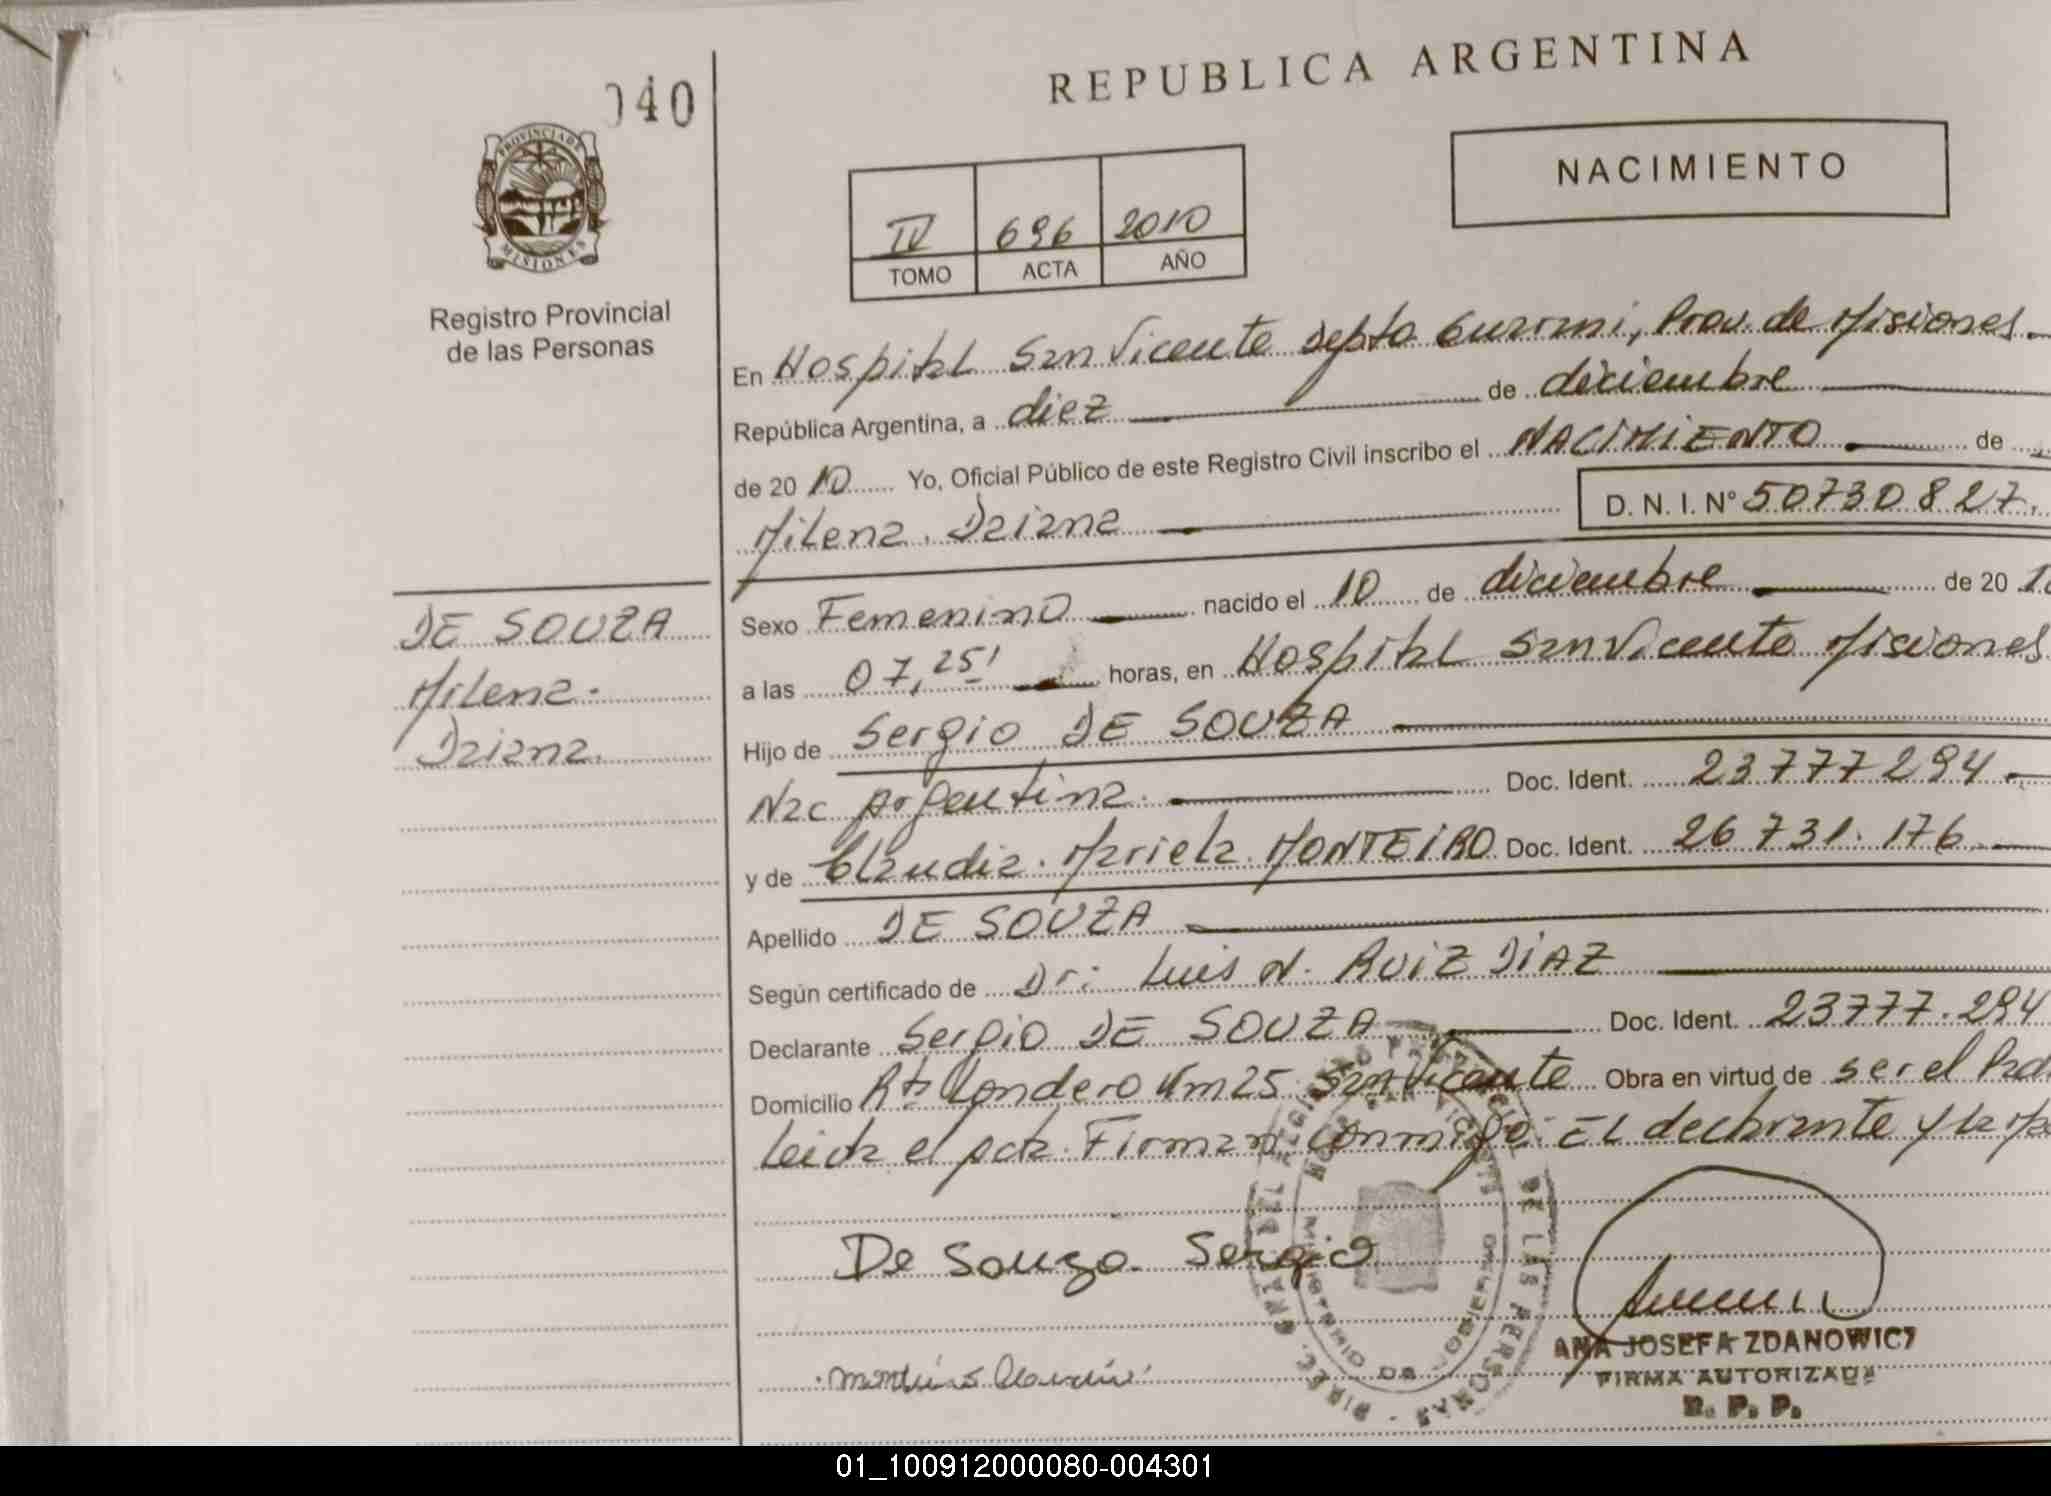 040
REPUBLICA ARGENTINA
PROVINCIA DE
MISIONES
Registro Provincial
de las Personas
NACIMIENTO
IV 696 2010
TOMO ACTA AÑO
En Hospital San Vicente depto Guarani, Prov. de Misiones.
República Argentina, a diez de diciembre
de 20 10 Yo, Oficial Público de este Registro Civil inscribo el NACIMIENTO de
Milena Daiana D. N. I. Nº 50730827.
DE SOUZA
Milena.
Daiana.
Sexo Femenino nacido el 10 de diciembre de 20
a las 07,25' horas, en Hospital San Vicente Misiones
Hijo de Sergio DE SOUZA
Nac Argentina. Doc. Ident. 23777294.
y de Claudia. Mariela. MONTEIRO Doc. Ident. 26 731.176
Apellido DE SOUZA
Según certificado de Dr: Luis N. RUIZ DIAZ
Declarante Sergio DE SOUZA Doc. Ident. 23777.294
Domicilio Rta Londero Km 25 San Vicente Obra en virtud de ser el
Leida el acta. Firman conmigo: EL declarante y la
De Souza Sergio
ANA JOSEFA ZDANOWICZ
FIRMA AUTORIZADA
R. P. P.
01_100912000080-004301